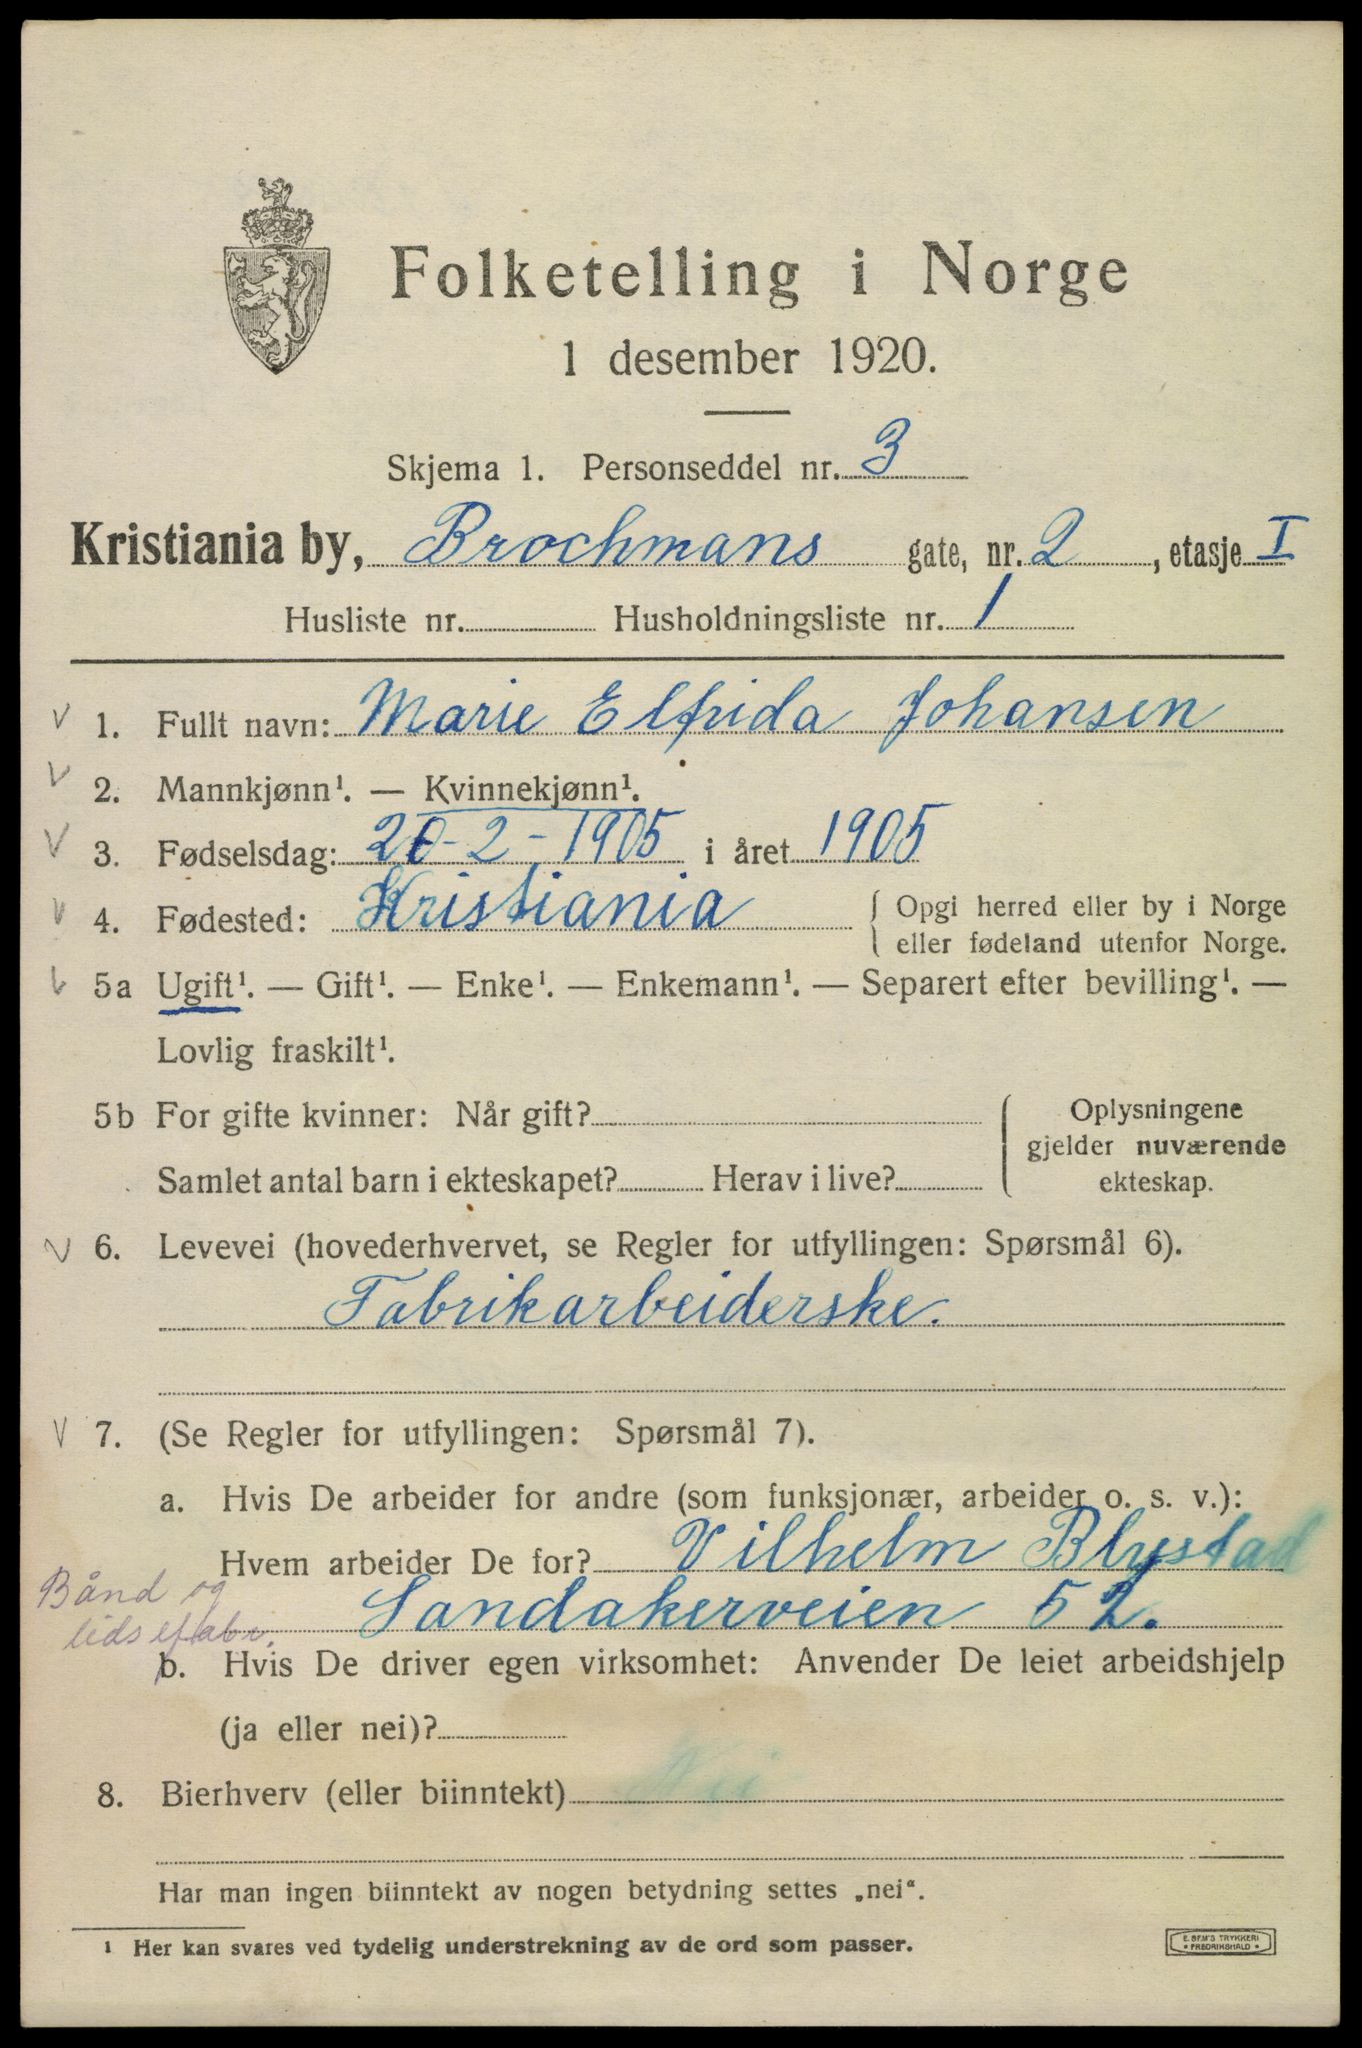 Folketelling i Norge
1 desember 1920.
Skjema 1. Personseddel nr. 3
Kristiania by, Brochmans gate, nr. 2, etasje I
Husliste nr. Husholdningsliste nr. 1
1. Fullt navn: Marie Elfrida Johansen
2. Mannkjønn¹. — Kvinnekjønn¹.
3. Fødselsdag: 20-2-1905 i året 1905
4. Fødested: Kristiania { Opgi herred eller by i Norge
eller fødeland utenfor Norge.
5a Ugift¹. — Gift¹. — Enke¹. — Enkemann¹. — Separert efter bevilling¹. —
Lovlig fraskilt¹.
5b For gifte kvinner: Når gift? Oplysningene
gjelder nuværende
Samlet antal barn i ekteskapet? Herav i live? ekteskap.
6. Levevei (hovederhvervet, se Regler for utfyllingen: Spørsmål 6).
Fabrikarbeiderske.
7. (Se Regler for utfyllingen: Spørsmål 7).
a. Hvis De arbeider for andre (som funksjonær, arbeider o. s. v.):
Hvem arbeider De for? Vilhelm Blystad
Bånd og
Sandakerveien 52.
b. Hvis De driver egen virksomhet: Anvender De leiet arbeidshjelp
(ja eller nei)?
8. Bierhverv (eller biinntekt) Nei
Har man ingen biinntekt av nogen betydning settes „nei“.
¹ Her kan svares ved tydelig understrekning av de ord som passer.
E. SEM'S TRYKKERI
* FREDRIKSHALD *